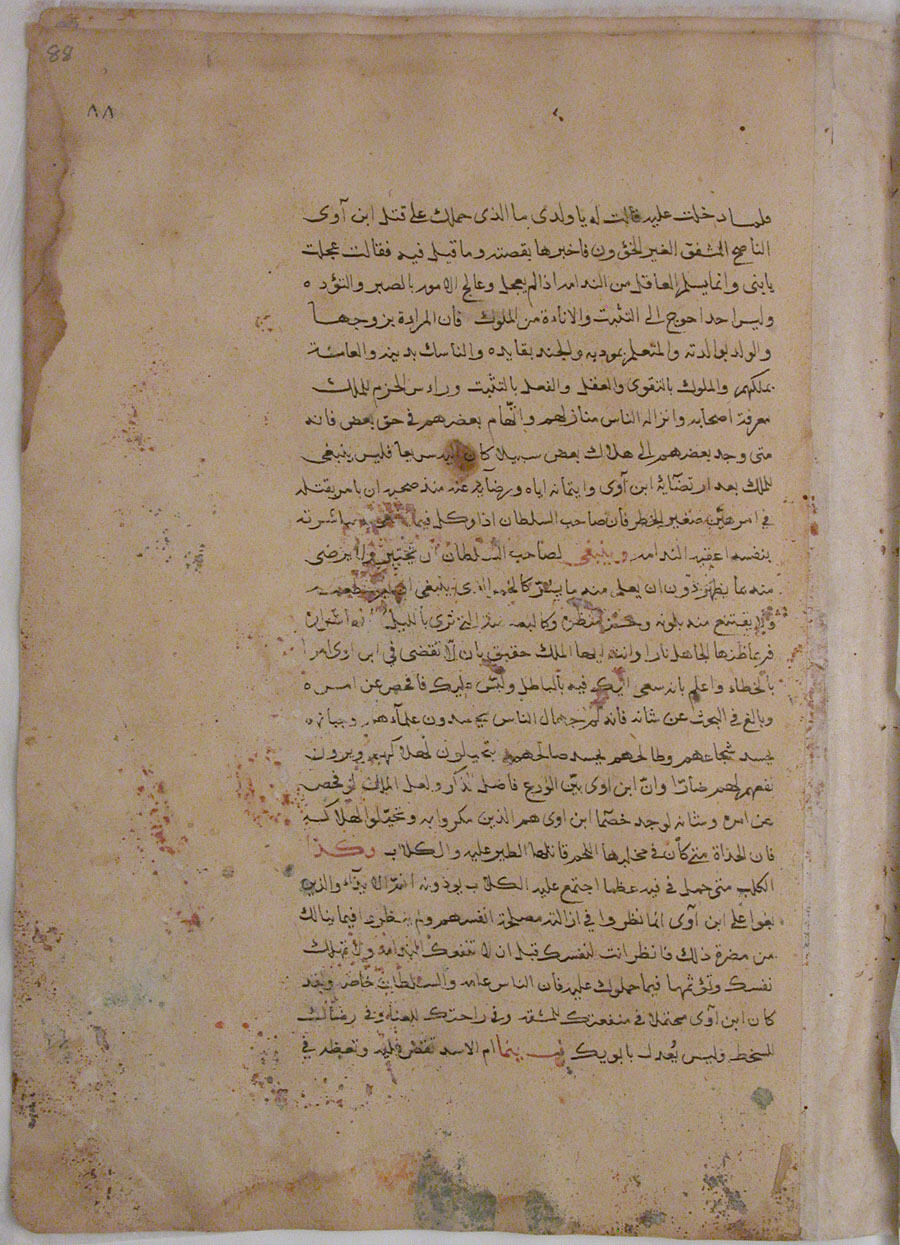 88
٨٨
ولما دخلت عليه قالت له يا ولدي ما الذي حملك على قتل ابن آوى
الناصح المشفق الغير الخؤون فاخبرها بقصته وما قيل فيه فقالت عجلت
يا بنى وانما يسلم العاقل من الندامه اذا لم يعجل وعالج الامور بالصبر والتؤده
وليس احد احوج الى التثبت والاناءة من الملوك فان المراة بزوجها
والولد بوالدته والمتعلم بمودبه والجند بقايده والناسك بدينه والعامة
بملكهم والملوك بالتقوى والعقل والفعل بالتثبت وراس الحزم للملك
معرفة اصحابه وانزاله الناس منازلهم واتهام بعضهم في حق بعض فانه
متى وجد بعضهم الى هلاك بعض سبيلا كان اليه سريعا فليس ينبغي
للملك بعد ارتضائه ابن آوى وايتمانه اياه ورضايه عنه منذ صحبه ان يامر بقتله
في امر هين صغير الخطر فان صاحب السلطان اذا وكل فيما مباشرته
بنفسه اعقبه الندامه وينبغي لصاحب السلطان ان ولا يرضى
منه بما يظهر دون ان يعلم منه ما كالخمر الذي ينبغي
ولا يقتنع منه بلونه وحسن منظره النبي ترى بالليل
فربما ظنها الجاهل نارا وانت ايها الملك حقيق بان لا تقضي في ابن اوى امرا
بالخطاء واعلم بانه سعى اليك فيه بالباطل ولبس عليك فافحص عن امره
وبالغ في البحوث عن شانه فانه كم جهال الناس يحسدون علمآءهم وجبانهم
يحسد شجاعهم وطالحهم يحسد صالحهم يتحيلون لهلاكهم ويرون
نفعهم لهم ضارا وان ابن اوى بين الورع فاضل الذكر ولعل الملك لو فحص
عن امره وشانه لوجد خصما ابن اوى هم الذين مكروا به وتحيلوا لهلاكه
فان الحداة متى كان في مخلبها اللحم قاتلها الطير عليه والكلاب وكذا
الكلب متى حمل في فيه عظما اجتمع عليه الكلاب يوذونه والذين
بغوا على ابن آوى انما نظروا في ازالته مصلحة انفسهم ولم ينظروا فيما ينالك
من مضرة ذلك فانظر انت لنفسك قبل ان لا تنفعك الندامه ولا تهلك
نفسك وتؤثمها فيما حملوك عليه فان الناس عامه والسلطان خاصة وقد
كان ابن آوى محتملا في منفعتك للمشقه وفي راحتك للعناء وفي رضائك
للسخط وليس يعدل بابويك فبينما ام الاسد تقص عليه وتعظه في